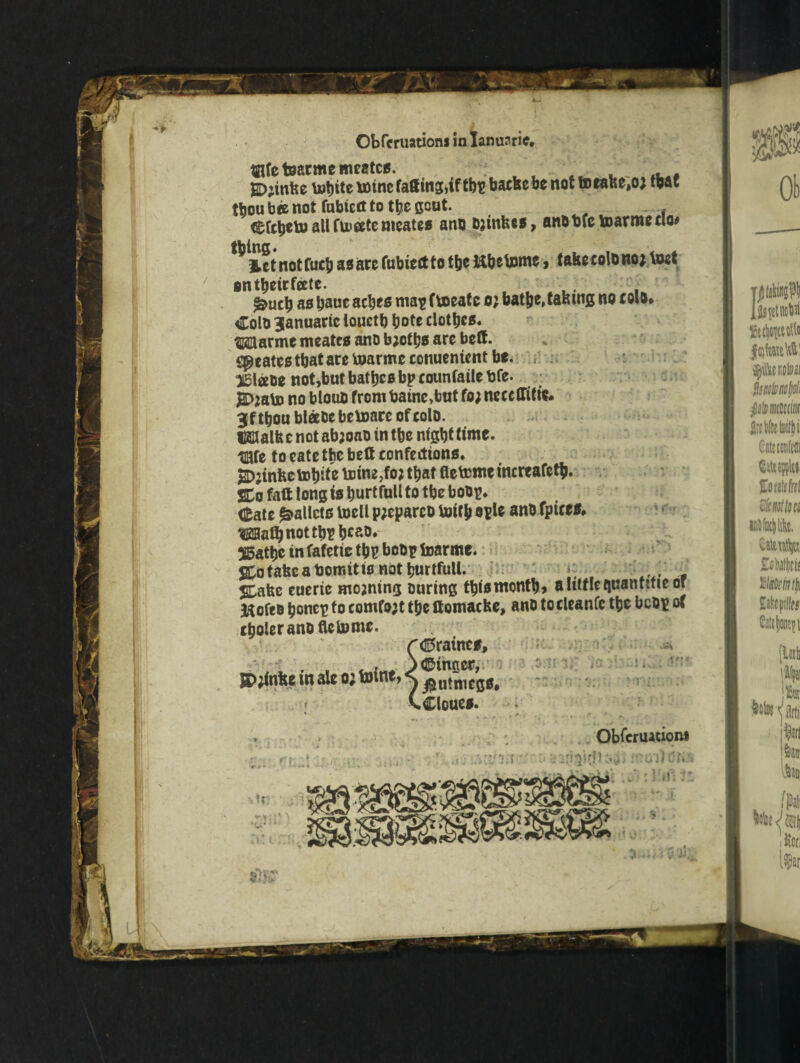 Obſeruations in Ianuarie.
Uſe warme meates.
Drinke white wine faſting, if thy backe be not weake, or that
thou bée not ſubiect to the gout.
Eſchew all ſwéete meates and drinkes, and vſe warme clo-
thing.
Let not ſuch as are ſubiect to the Rhewme, take cold nor wet
on their féete.
Such as haue aches may ſweate or bathe, taking no cold.
Cold Ianuarie loueth hote clothes.
Warme meates and broths are beſt.
Meates that are warme conuenient be.
Bléede not, but bathes by counſaile vſe.
Draw no bloud from vaine, but for neceſſitie.
If thou bléede beware of cold.
Walke not abroad in the night time.
Uſe to eate the beſt confections.
Drinke white wine, for that flewme increaſeth.
To faſt long is hurtfull to the body.
Eate Sallets well prepared with oyle and ſpices.
Waſh not thy head.
Bathe in ſafetie thy body warme.
To take a vomit is not hurtfull.
Take euerie morning during this month, a little quantitie of
Roſed honey to comfort the ſtomacke, and to cleanſe the body of
choler and flewme.
Drinke in ale or wine,
Graines,
Ginger,
Nutmegs,
Cloues.
Obſeruations
Ob